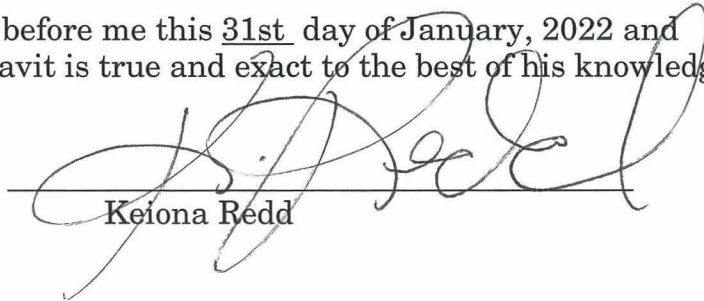 before me this 31st day of January, 2022 and
avit is true and exact to the best of his knowledg
K. Redd
Keiona Redd